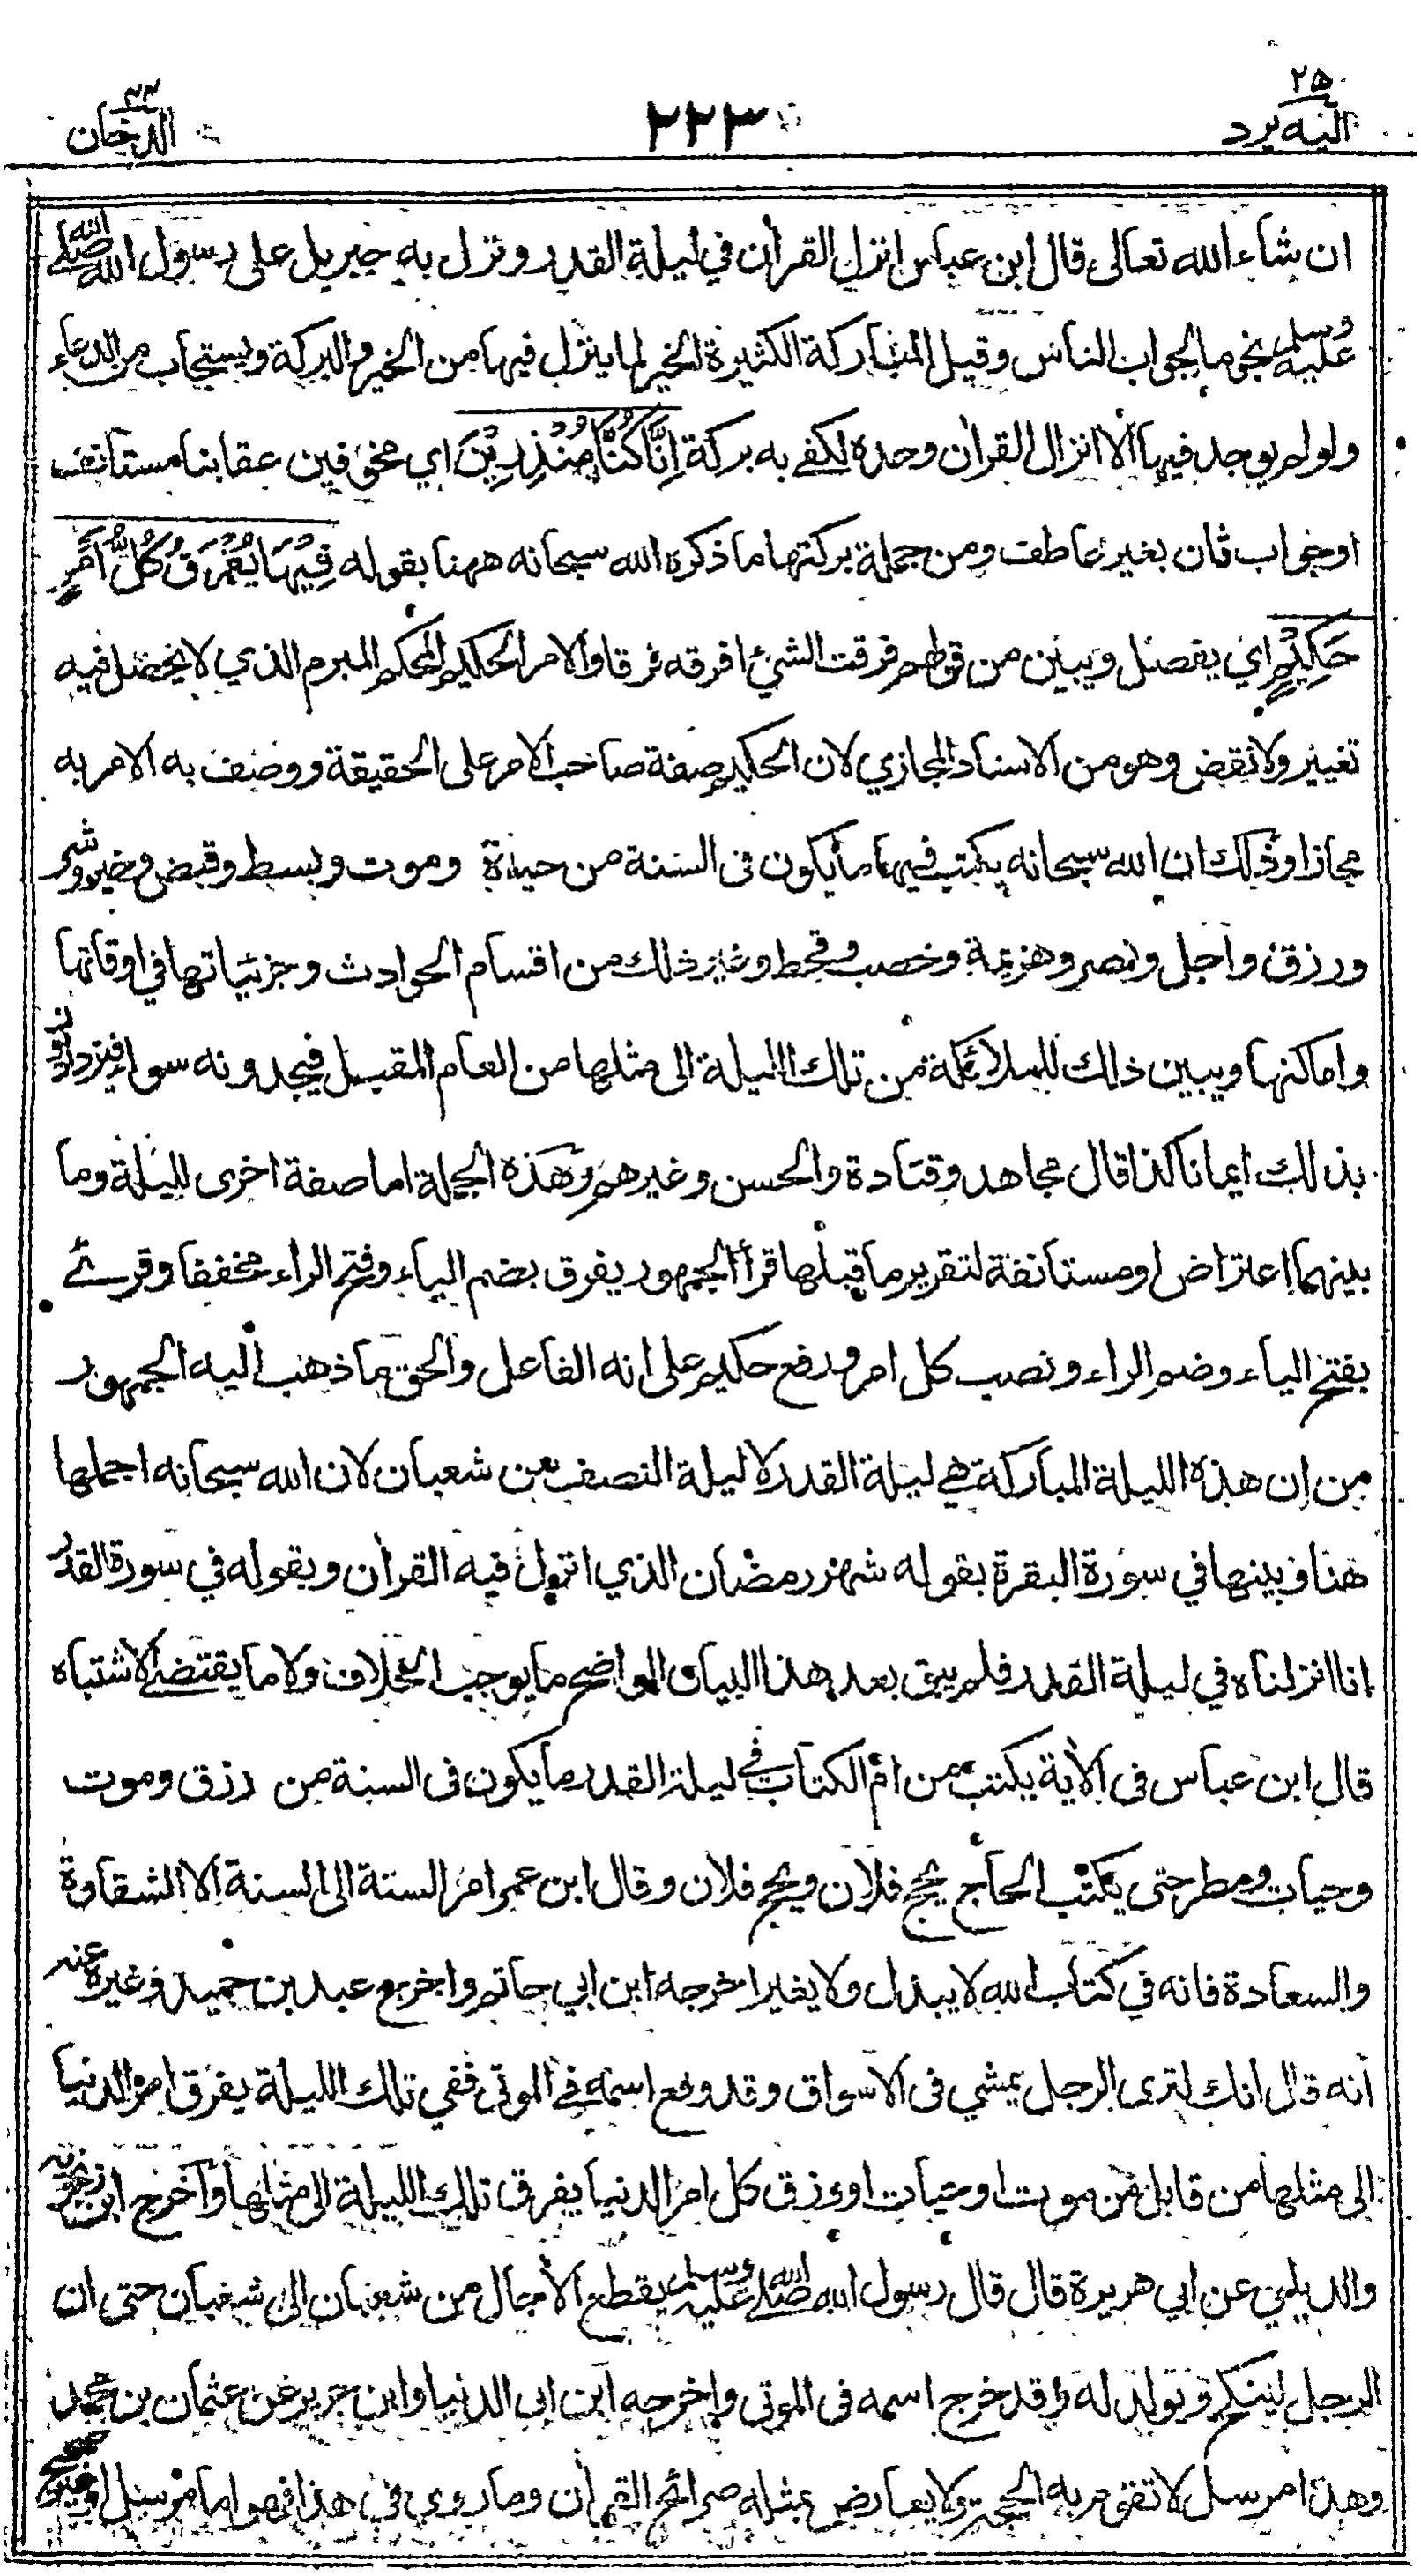 ٢٥
اليه يرد
٢٢٣
٤٤
الدخان
ان شاء الله تعالى قال ابن عباس انزل القرأن في ليلة القدر ونزل به جبريل على رسول الله صلى الله
عليه وسلم نجوما لجواب الناس وقيل المباركة الكثيرة الخير لما ينزل فيها من الخير والبركة ويستجاب من الدعاء
ولو لم يوجد فيها الا انزال القرأن وحده لكفى به بركة اِنَّا كُنَّا مُنْذِرِيْنَ اي مخوفين عقابنا مستأنف
اوجواب ثان بغير عاطف ومن جملة بركتها ما ذكره الله سبحانه ههنا بقوله فِيْهَا يُفْرَقُ كُلُّ اَمْرٍ
حَكِيْمٍ اي يفصل ويبين من قولهم فرقت الشيئ افرقه فرقا والامر الحكيم المحكم المبرم الذي لا يحصل فيه
تغيير ولا نقض وهو من الاسناد المجازي لان الحكيم صفة صاحب الامر على الحقيقة ووصف به الامر به
مجازا وذلك ان الله سبحانه يكتب فيها ما يكون فى السنة من حياة وموت وبسط وقبض وخير وشر
ورزق واجل ونصر وهزيمة وخصب وقحط وغير ذلك من اقسام الحوادث وجزئياتها في اوقاتها
واماكنها ويبين ذلك للملائكة من تلك الليلة الى مثلها من العام المقبل فيجدونه سواء فيزدادون
بذلك ايمانا كذا قال مجاهد وقتادة والحسن وغيرهم وهذه الجملة اما صفة اخرى لليلة وما
بينهما اعتراض او مستانفة لتقرير ما قبلها قرأ الجمهور يفرق بضم الياء وفتح الراء مخففا وقرئ
بفتح الياء وضم الراء ونصب كل امر ورفع حكيم على انه الفاعل والحق ما ذهب اليه الجمهور
من ان هذه الليلة المباركة هي ليلة القدر لا ليلة النصف من شعبان لان الله سبحانه اجملها
هنا وبينها في سورة البقرة بقوله شهر رمضان الذي انزل فيه القرأن وبقوله في سورة القدر
انا انزلناه في ليلة القدر فلم يبق بعد هذا البيان الواضح ما يوجب الخلاف ولا ما يقتضى الاشتباه
قال ابن عباس فى الأية يكتب من ام الكتاب في ليلة القدر ما يكون فى السنة من رزق وموت
وحيات ومطر حتى يكتب الحاج يحج فلان ويحج فلان وقال ابن عمر امر السنة الى السنة الا الشقاوة
والسعادة فانه في كتاب الله لا يبدل ولا يغير اخرجه ابن ابي حاتم واخرج عبد بن حميد وغيره عنه
أنه قال انك لترى الرجل يمشي فى الاسواق وقد وقع اسمه في الموتى ففي تلك الليلة يفرق امر الدنيا
الى مثلها من قابل من موت او حيات او رزق كل امر الدنيا يفرق تلك الليلة الى مثلها واخرج ابن زنجويه
والديلمي عن ابي هريرة قال قال رسول الله صلى الله عليه وسلم يقطع الأجال من شعبان الى شعبان حتى ان
الرجل لينكح ويولد له وقد خرج اسمه فى الموتى واخرجه ابن ابى الدنيا وابن جرير عن عثمان بن محمد
وهذا مرسل لا تقوم به الحجة ولا يعارض بمثله صرائح القرأن وما روي في هذا فهو اما مرسل او غير صحيح